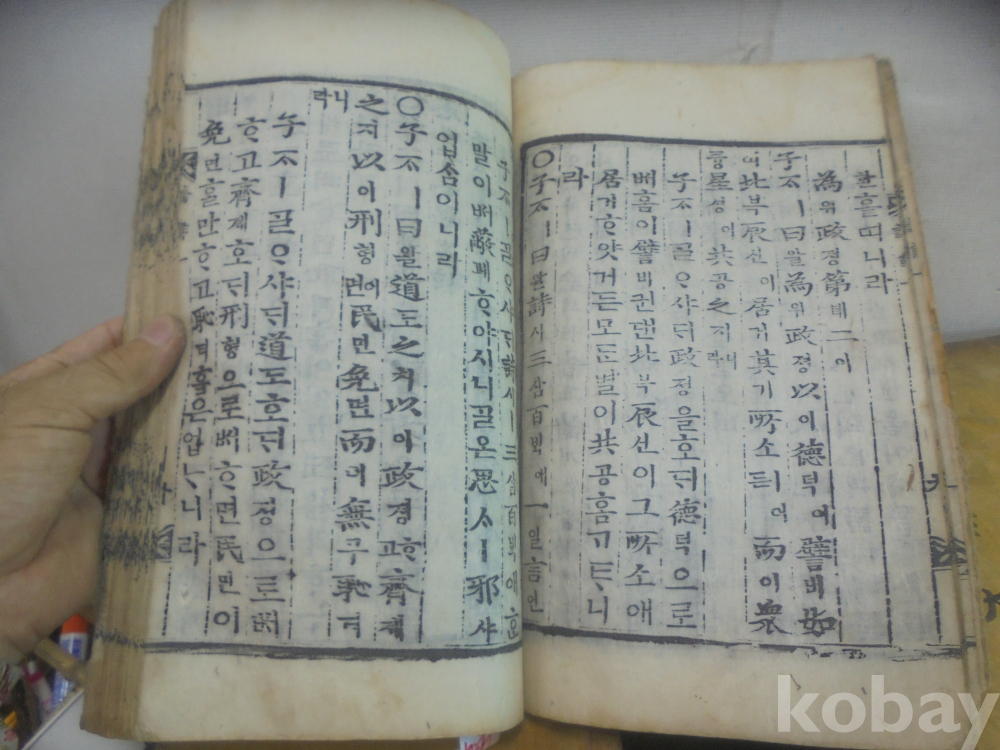 환홀띠니라
為위政졍第뎨二이
子ᄌᆞㅣ曰왈為위政졍以이德덕이譬비如
여北북辰신이居거其기所소ㅣ어든而이衆
즁星셩이共공之지니라
子ᄌᆞㅣᄀᆞᆯᄋᆞ샤ᄃᆡ政졍을호ᄃᆡ德덕으로
ᄡᅥ홈이譬비컨댄北북辰신이그所소애
居거ᄒᆞ얏거든모ᄃᆞᆫ별이共공홈ᄀᆞᄐᆞ니
라
○子ᄌᆞㅣ曰왈詩시三삼百ᄇᆡᆨ애一일言언
子ᄌᆞㅣᄀᆞᆯᄋᆞ샤ᄃᆡ詩시ㅣ三삼百ᄇᆡᆨ애ᄒᆞᆫ
말이ᄡᅥ蔽폐ᄒᆞ야시니ᄀᆞᆯ온思ᄉᆞㅣ邪샤
업ᄉᆞᆷ이니라
○子ᄌᆞㅣ曰왈道도之지以이政졍ᄒᆞ고齊졔
之지以이刑형이면民민免면而이無무恥티
니라
子ᄌᆞㅣᄀᆞᆯᄋᆞ샤ᄃᆡ道도호ᄃᆡ政졍으로ᄡᅥ
ᄒᆞ고齊졔호ᄃᆡ刑형으로ᄡᅥᄒᆞ면民민이
免면홀만ᄒᆞ고恥티홈은업ᄂᆞ니라
kobay